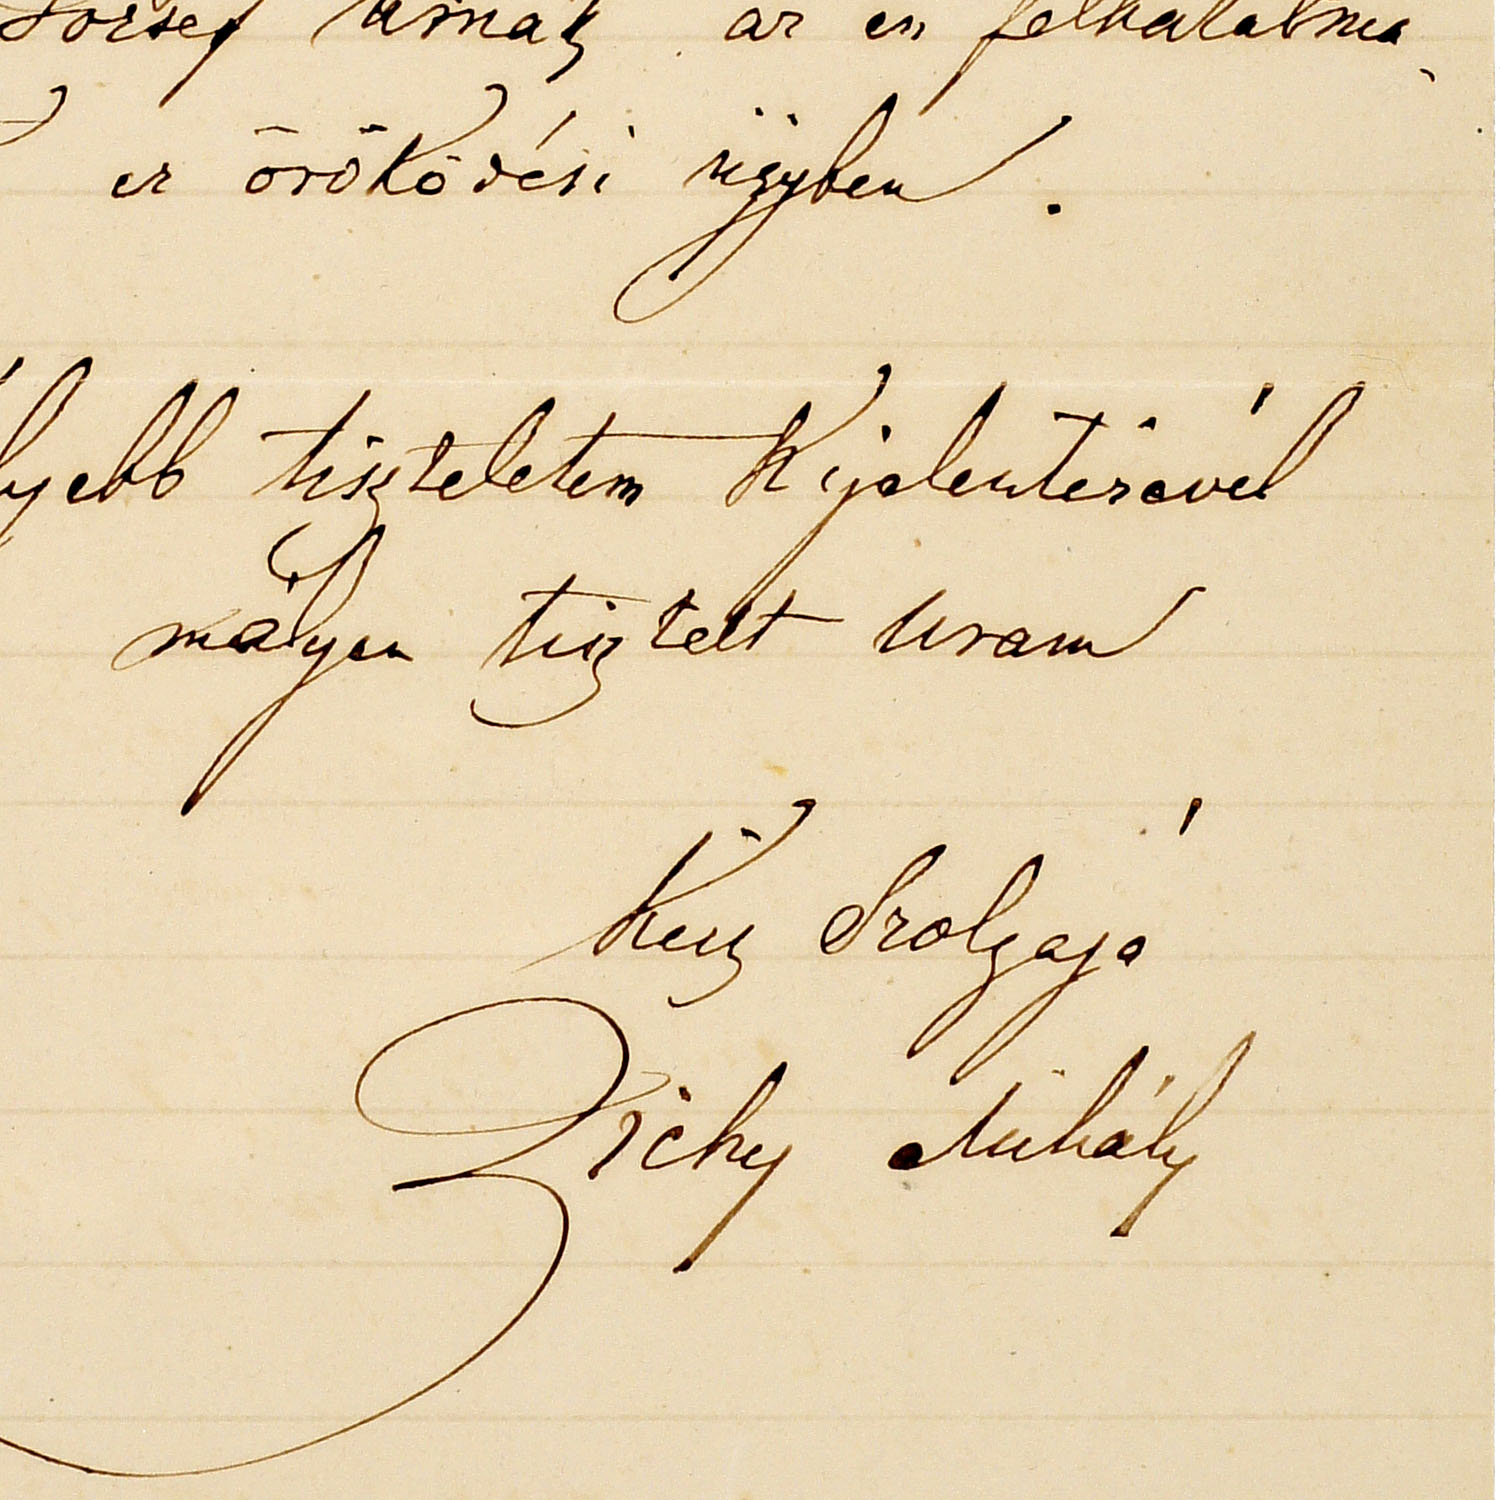 József urnak az én felhatalma
ez öröködési ügyben.
lyebb tiszteletem kijelentésével
mélyen tisztelt Uram
Kész Szolgája
Zichy Mihály